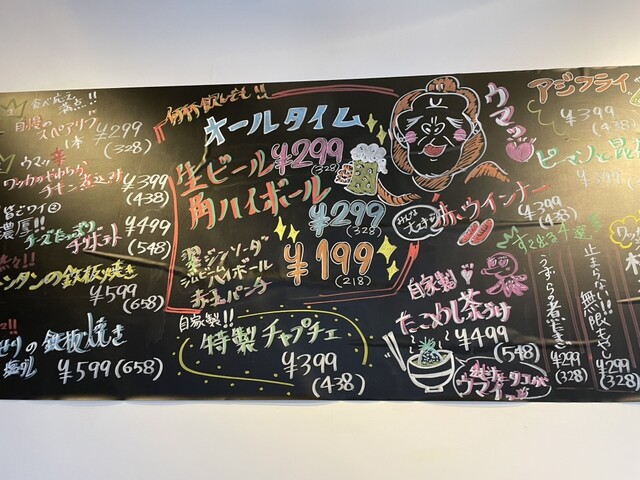 自慢の
スペアリブ
1本
¥299
(328)
ウマッ辛
ワッカのやわらか
チキン煮込み
¥399
(438)
濃厚!!
チーズたっぷり
チヂポテト
¥499
(548)
タンの鉄板焼き
¥599
(658)
せりの鉄板焼き
塩ダレ
¥599(658)
何杯飲んでも!!
オールタイム
生ビール
¥299
(328)
角ハイボール
¥299
(328)
翠ジンソーダ
ビームハイボール
赤玉パンチ
¥199
(218)
自家製!!
特製チャプチェ
¥399
(438)
ウマッ
みんな大好き
赤ウインナー
¥399
(438)
自家製
たこめし茶づけ
¥499
(548)
ウマイ
アジフライ
¥399
(438)
ピーマンと昆
¥399
すぐ出る4選
うずらの煮たまご
¥299
(328)
止まらない!!無限
¥299
(328)